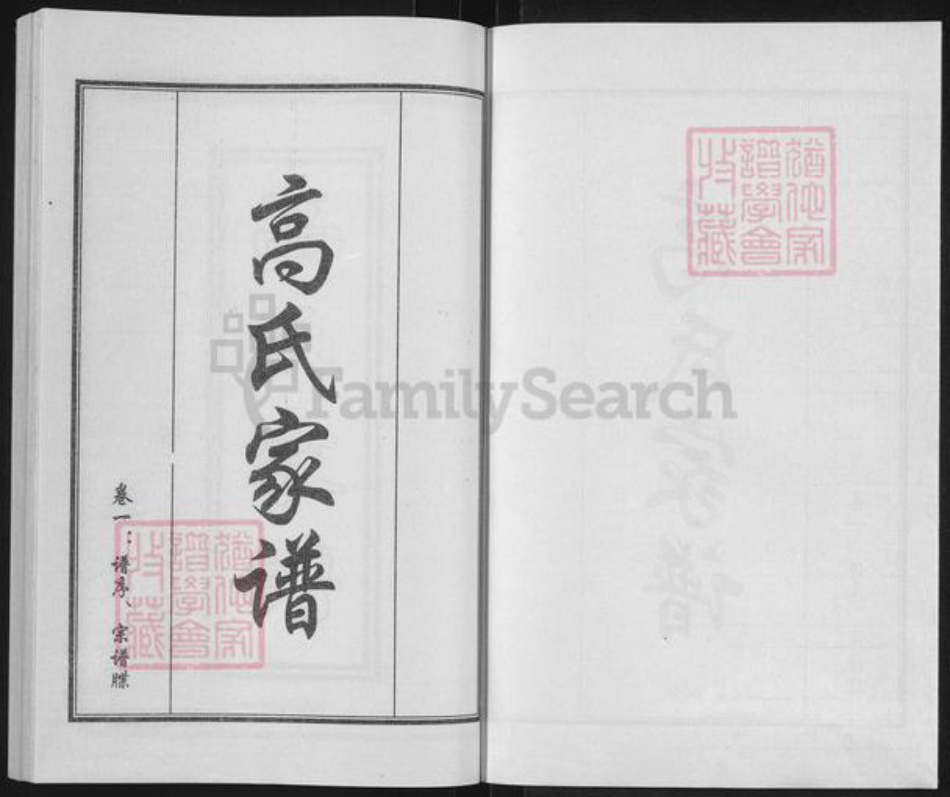 高氏家谱
卷一：谱序、宗谱牒
FamilySearch
猶他家
譜學會
收藏
猶他家
譜學會
收藏